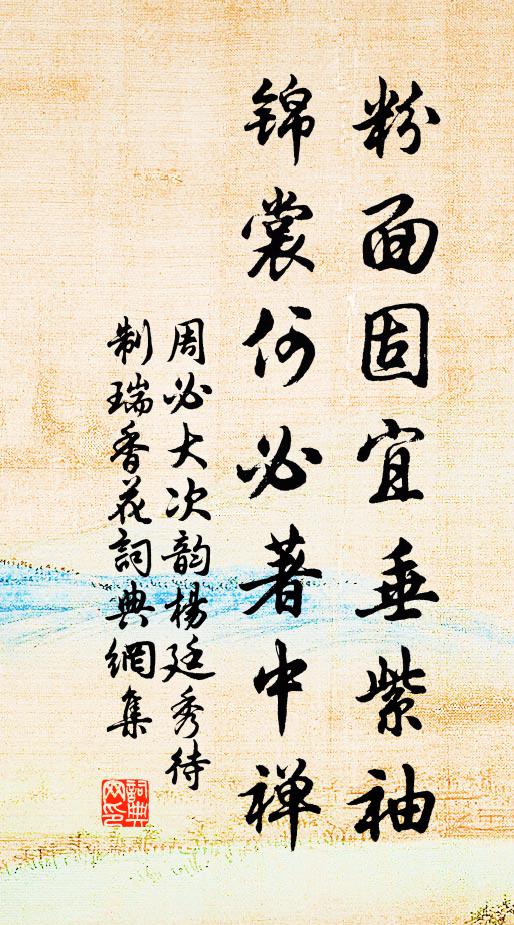 粉面固宜垂紫袖
锦裳何必著中禅
周必大次韵杨廷秀待
制瑞香花词典网集
詞典网印